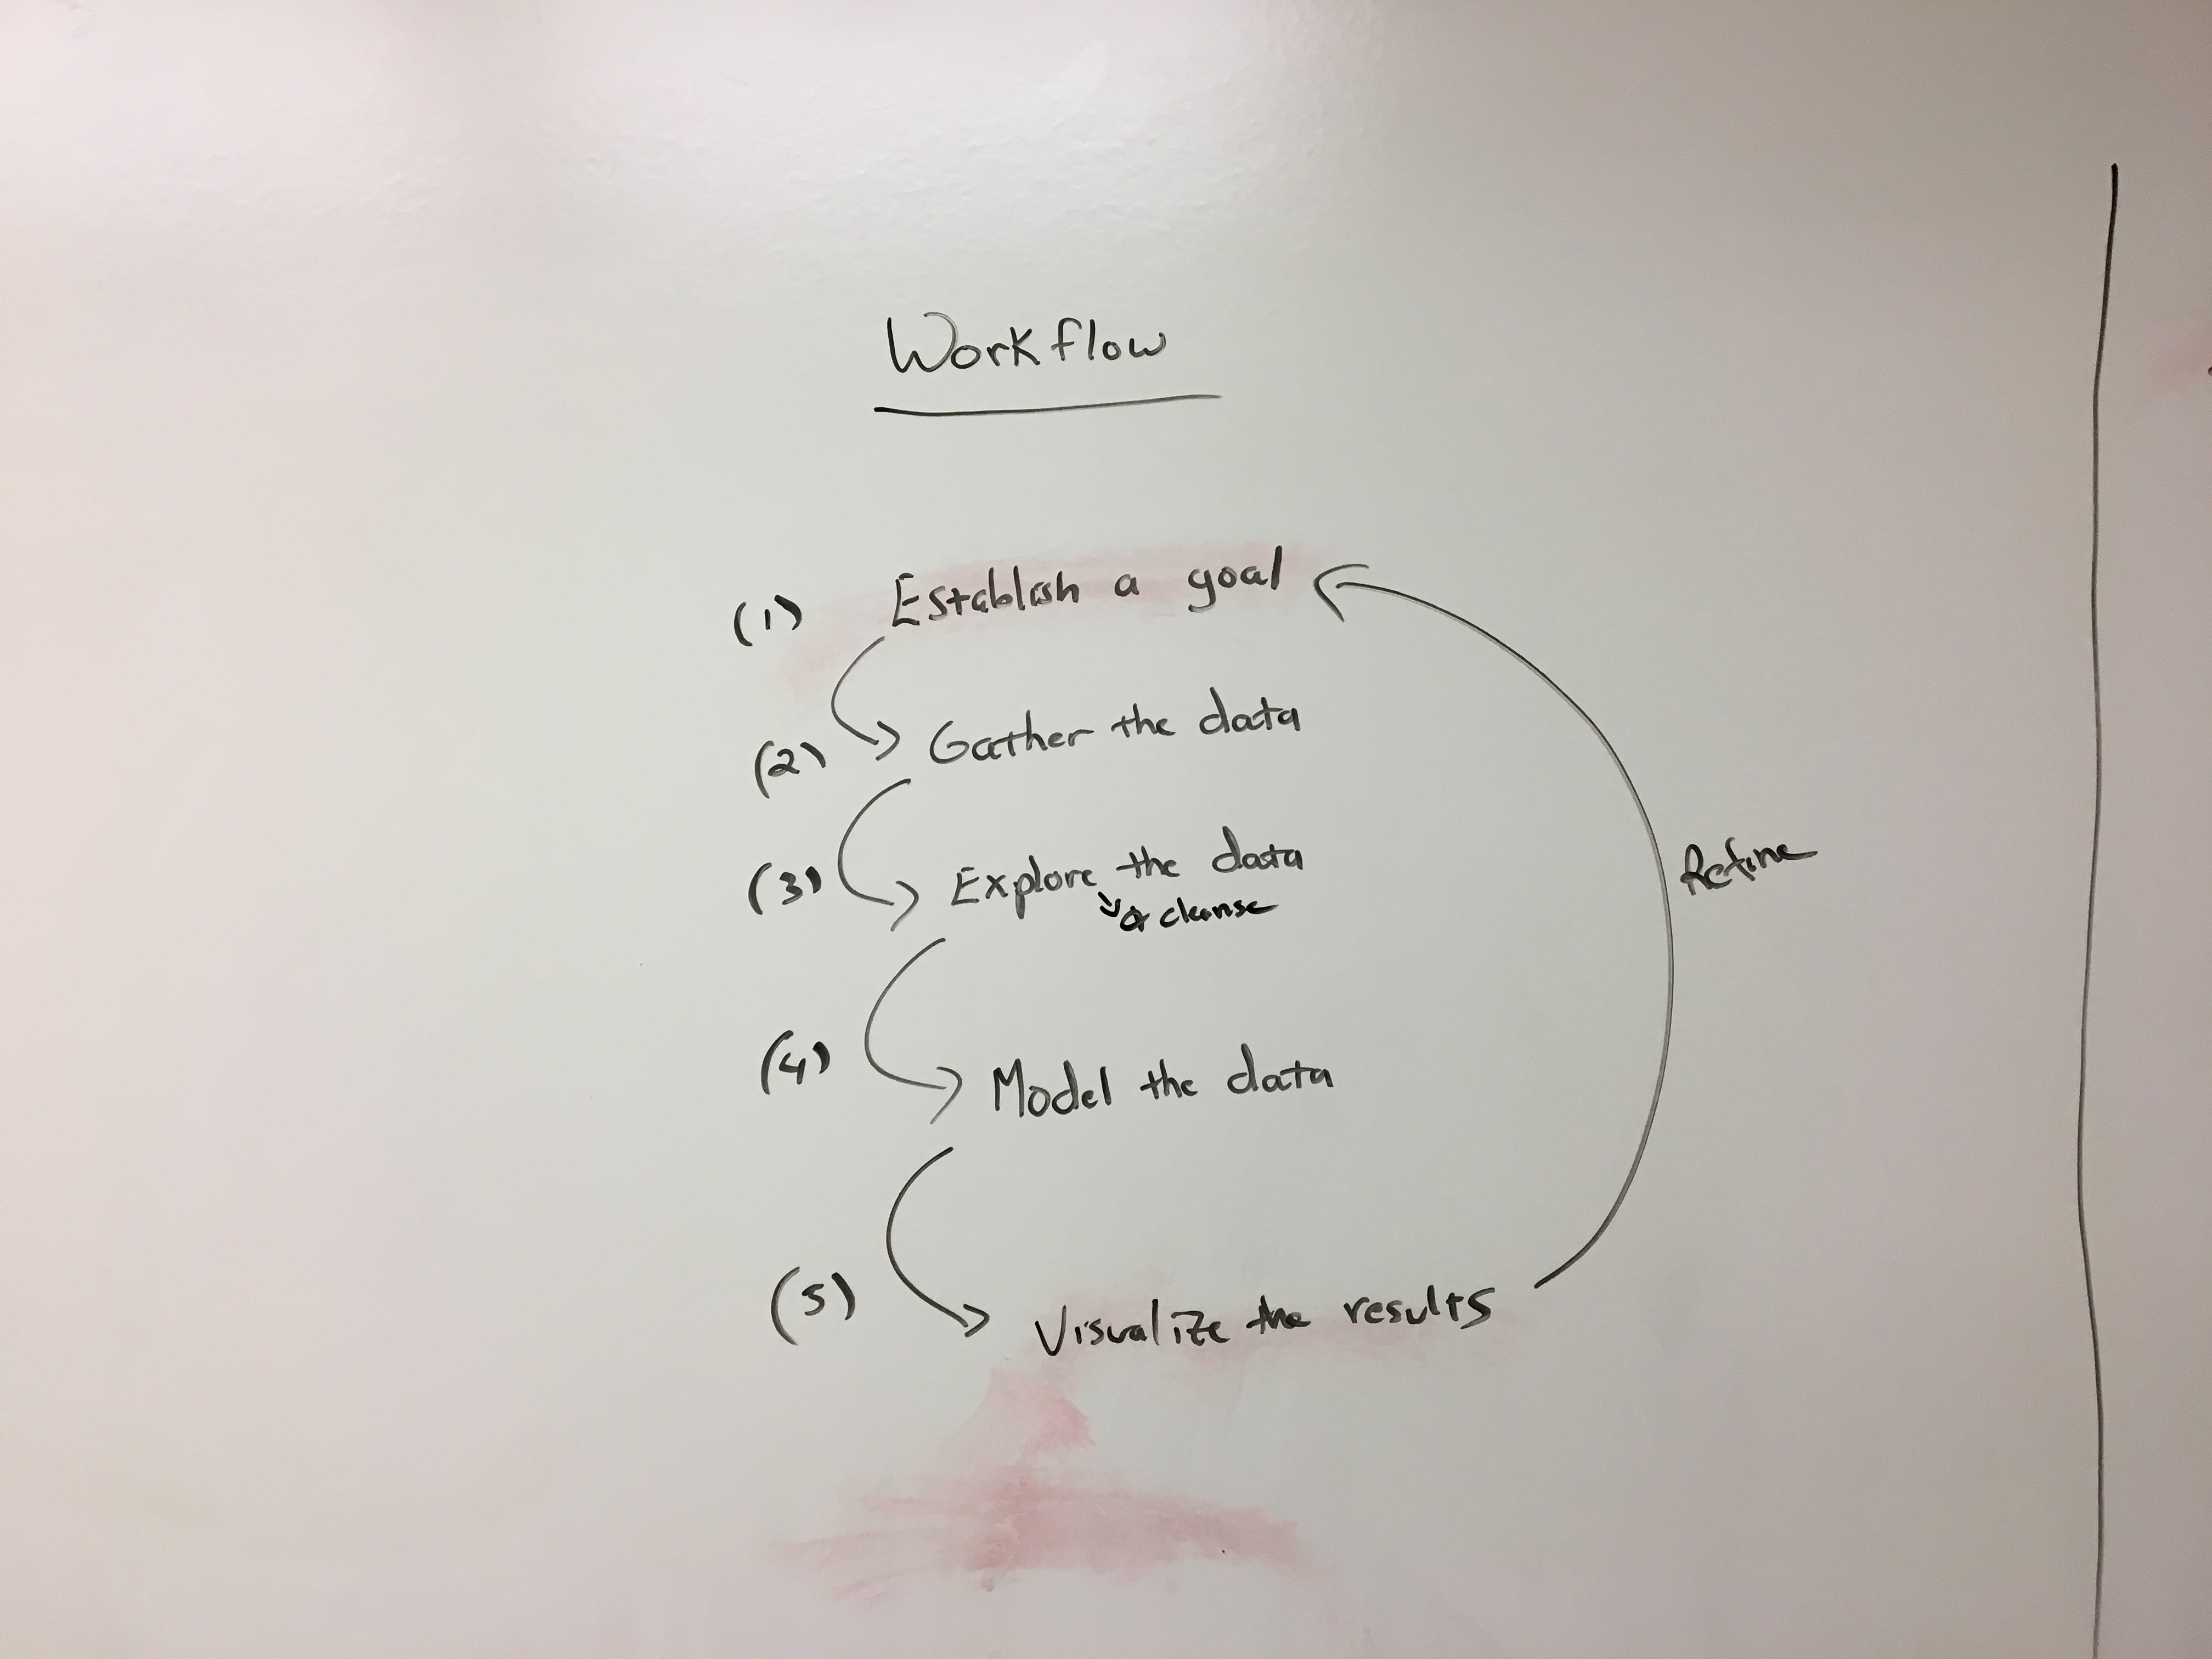 Workflow
(1) Establish a goal
(2) Gather the data
(3) Explore the data
& cleanse
Refine
(4) Model the data
(5) Visualize the results